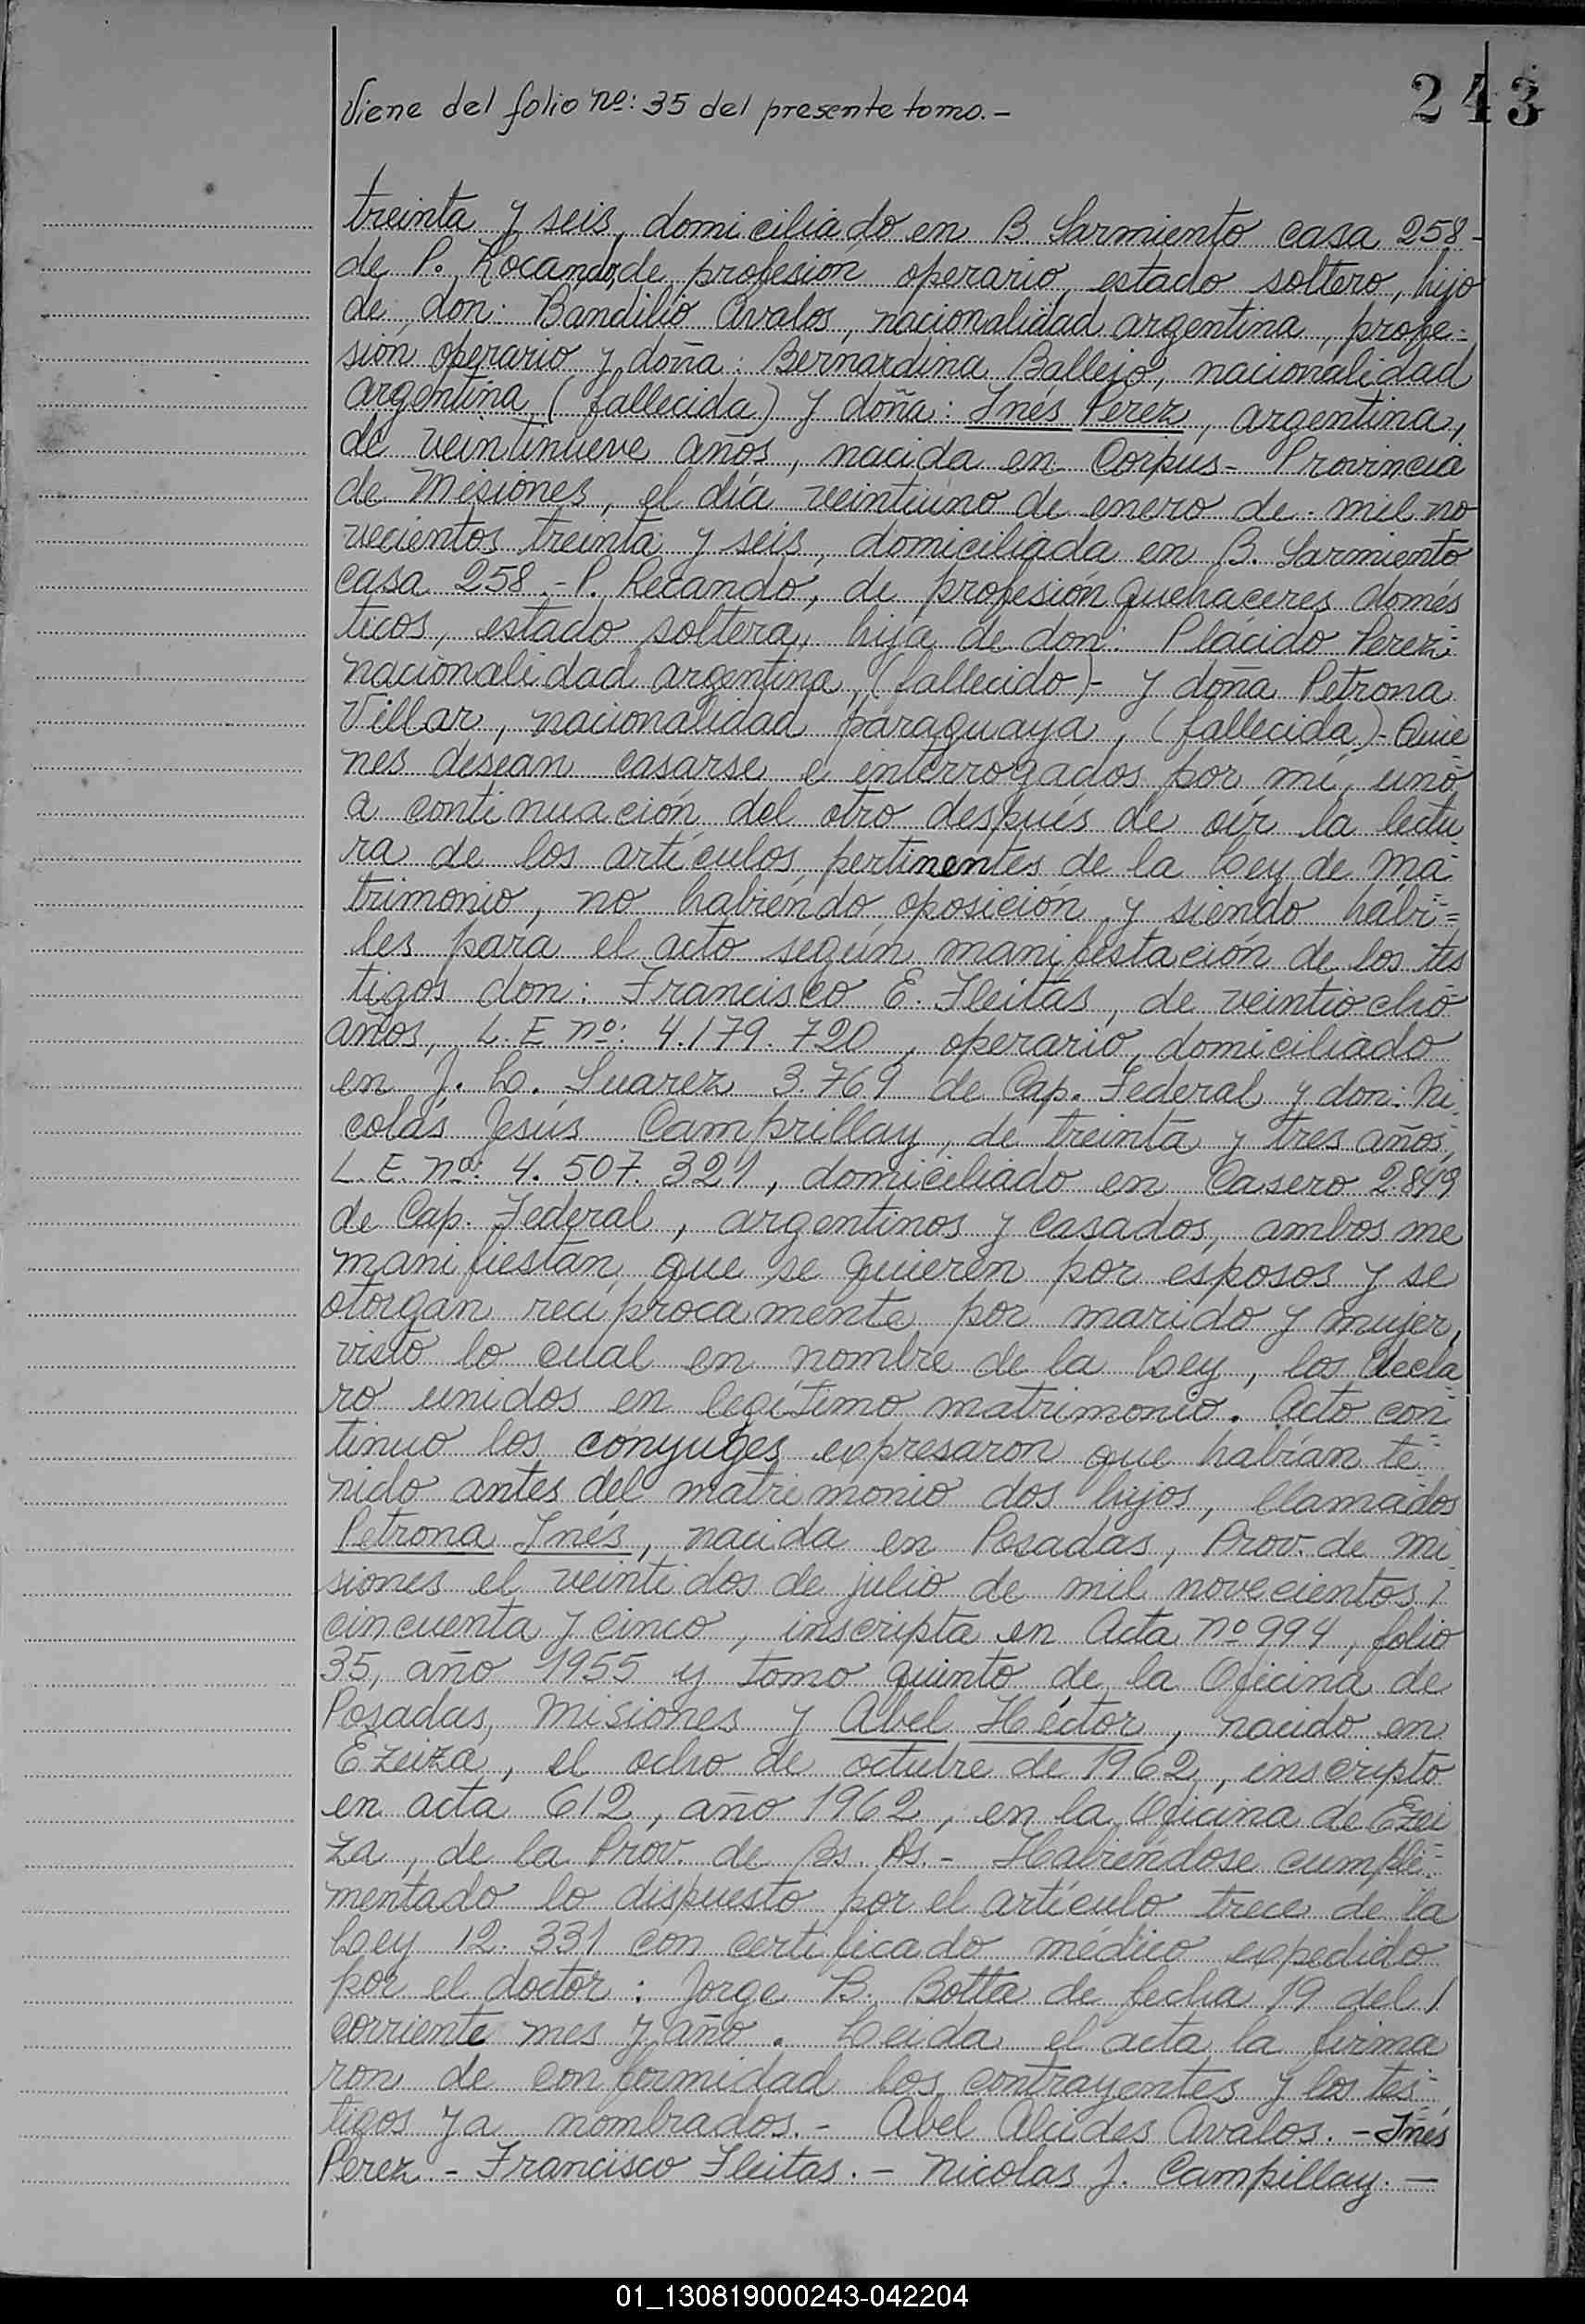 Viene del folio nº: 35 del presente tomo.-
243
treinta y seis, domiciliado en B Sarmiento casa 258-
de P. Rocando, de profesion operario, estado soltero, hijo
de don: Bandilio Avalos, nacionalidad argentina, profe-
sión operario y doña: Bernardina Ballejo, nacionalidad
argentina (fallecida) y doña: Inés Perez, argentina,
de veintinueve años, nacida en Corpus- Provincia
de Misiones, el día veintiuno de enero de mil no
vecientos treinta y seis, domiciliada en B. Sarmiento
casa 258.- P. Recando, de profesión quehaceres domés
ticos, estado soltera, hija de don: Plácido Perez-
nacionalidad argentina, (fallecido)- y doña Petrona
Villar, nacionalidad paraguaya, (fallecida)- Quie
nes desean casarse e interrogados por mí, uno
a continuación del otro después de oír la lectu
ra de los artículos pertinentes de la Ley de ma-
trimonio, no habiéndo oposición y siendo hábi=
les para el acto según manifestación de los tes
tigos don: Francisco E. Fleitas, de veintiocho
años, L.E nº: 4.179.720, operario, domiciliado
en J. L. Suarez 3.769 de Cap. Federal y don: Ni
colás Jesús Camprillay, de treinta y tres años,
L.E. nº: 4.507.321, domiciliado en Casero 2.849
de Cap. Federal, argentinos y casados, ambos me
manifiestan que se quieren por esposos y se
otorgan recíprocamente por marido y mujer,
visto lo cual en nombre de la Ley, los decla
ro unidos en legítimo matrimonio. Acto con-
tinuo los conyuges expresaron que habían te-
nido antes del matrimonio dos hijos, llamados
Petrona Inés, nacida en Posadas, Prov. de Mi
siones el veintidos de julio de mil novecientos/
cincuenta y cinco, inscripta en Acta nº 994, folio
35, año 1955 y tomo quinto de la Oficina de
Posadas, Misiones y Abel Héctor, nacido en
Ezeiza, el ocho de octubre de 1962, inscripto
en acta 612, año 1962, en la Oficina de Ezei
za, de la Prov. de Bs. As.- Habiéndose cumpli-
mentado lo dispuesto por el artículo trece de la
Ley 12.331 con certificado médico expedido
por el doctor: Jorge B. Botta de fecha 19 del/
corriente mes y año. Leida el acta la firma
ron de conformidad los contrayentes y los tes-
tigos ya nombrados.- Abel Alcides Avalos.-Inés
Perez - Francisco Fleitas.- Nicolas J. Campillay.-
01_130819000243-042204